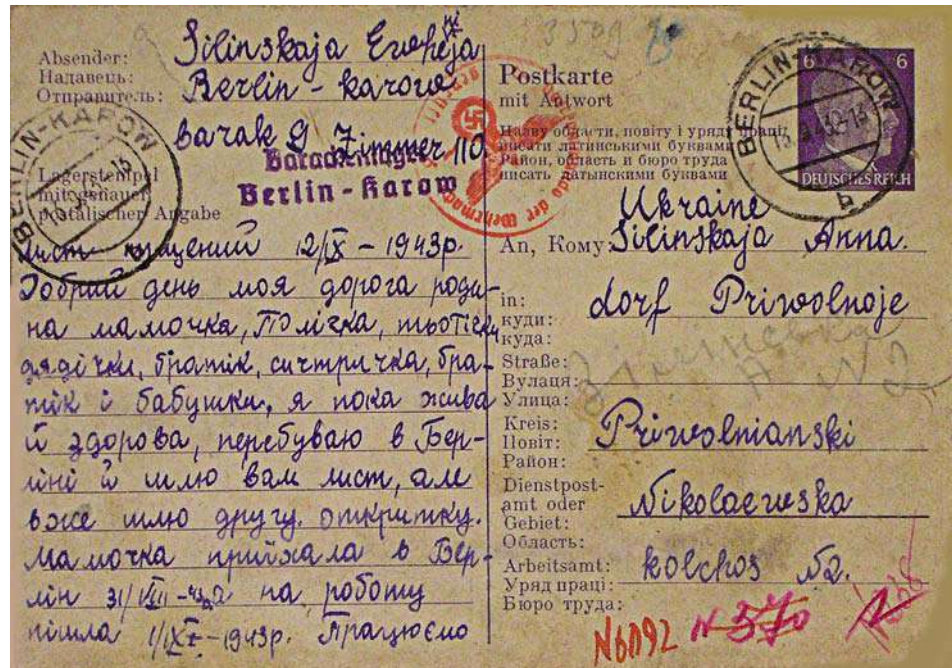 Absender:
Надавець:
Отправитель:
Silinskaja
Berlin - karow
barak 9 Zimmer 110
Barackenlager
Berlin-Karow
Lagerstempel
mit genauer
postalischer Angabe
BERLIN-KAROW
Лист пищений 12/IX - 1943р.
Добрий день моя дорога роди-
на мамочка, Полічка, тьотічки
дядічки, братік, систричка, бра-
тік і бабушка, я пока жива
й здорова, перебуваю в Бер-
ліні й шлю вам лист, але
вже шлю другу открытку.
Мамочка приїхала в Бер-
лін 31/VIII на роботу
пішла 1/IX - 1943р. Працюємо
Postkarte
mit Antwort
Назву области, повіту і уряду праці
писати латинськими буквами
Район, область и бюро труда
писать латынскими буквами
BERLIN-KAROW
6 6
DEUTSCHES REICH
der Wehrmacht
Ukraine
An, Кому: Silinskaja Anna.
in:
куди:
куда:
dorf Priwolnoje
Straße:
Вулаця:
Улица:
Kreis:
Повіт:
Район:
Priwolnianski
Dienstpost-
amt oder
Gebiet:
Область:
Nikolaewska
Arbeitsamt:
Уряд праці:
Бюро труда:
kolchos №2.
N6092 N 570